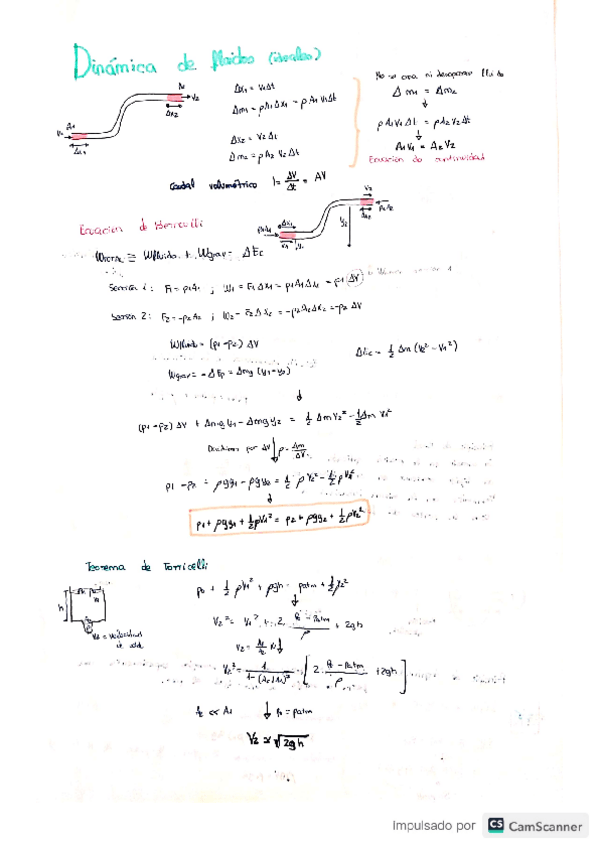 Dinámica de fluidos (ideales)
A2
→ V2
Δx2
A1
V1 →
Δx1
Δx1 = V1Δt
Δm1 = ρ A1 Δx1 = ρ A1 V1Δt
Δx2 = V2 Δt
Δm2 = ρ A2 V2 Δt
No se crea ni desaparece fluido
Δ m1 = Δm2
↓
ρ A1 V1 Δt = ρ A2 V2 Δt
↓
A1 V1 = A2 V2
Ecuación de continuidad
Caudal volumétrico I = ΔV/Δt = AV
Ecuación de Bernoulli
V2
Δx2
P2A2
y2
P1A1
Δx1
V1
y1
Wfluido + Wgrav = ΔEc
Sección 1: F1 = p1A1 ; W1 = F1 Δx1 = p1 A1 Δx1 = p1 ΔV
Sección 2: F2 = -p2 A2 ; W2 = F2 Δx2 = -p2 A2 Δx2 = -p2 ΔV
Wfluido = (p1 - p2) ΔV
ΔEc = 1/2 Δm (V2² - V1²)
Wgrav = -ΔEp = Δmg (y1 - y2)
↓
(p1 - p2) ΔV + Δmg y1 - Δmg y2 = 1/2 Δm V2² - 1/2 Δm V1²
Dividimos por ΔV ↓ ρ = Δm/ΔV
p1 - p2 + ρgy1 - ρgy2 = 1/2 ρ V2² - 1/2 ρ V1²
↓
p1 + ρgy1 + 1/2 ρV1² = p2 + ρgy2 + 1/2 ρV2²
Teorema de Torricelli
h
V2 = velocidad
de salida
p0 + 1/2 ρ V1² + ρgh = patm + 1/2 ρ V2²
↓
V2² = V1² + 2 (p0 - patm)/ρ + 2gh
↓
V2² = 1/(1 - (A2/A1)²) [2 (p0 - patm)/ρ + 2gh]
A2 << A1 ↓ p0 = patm
V2 ≃ √2gh
Impulsado por CS CamScanner